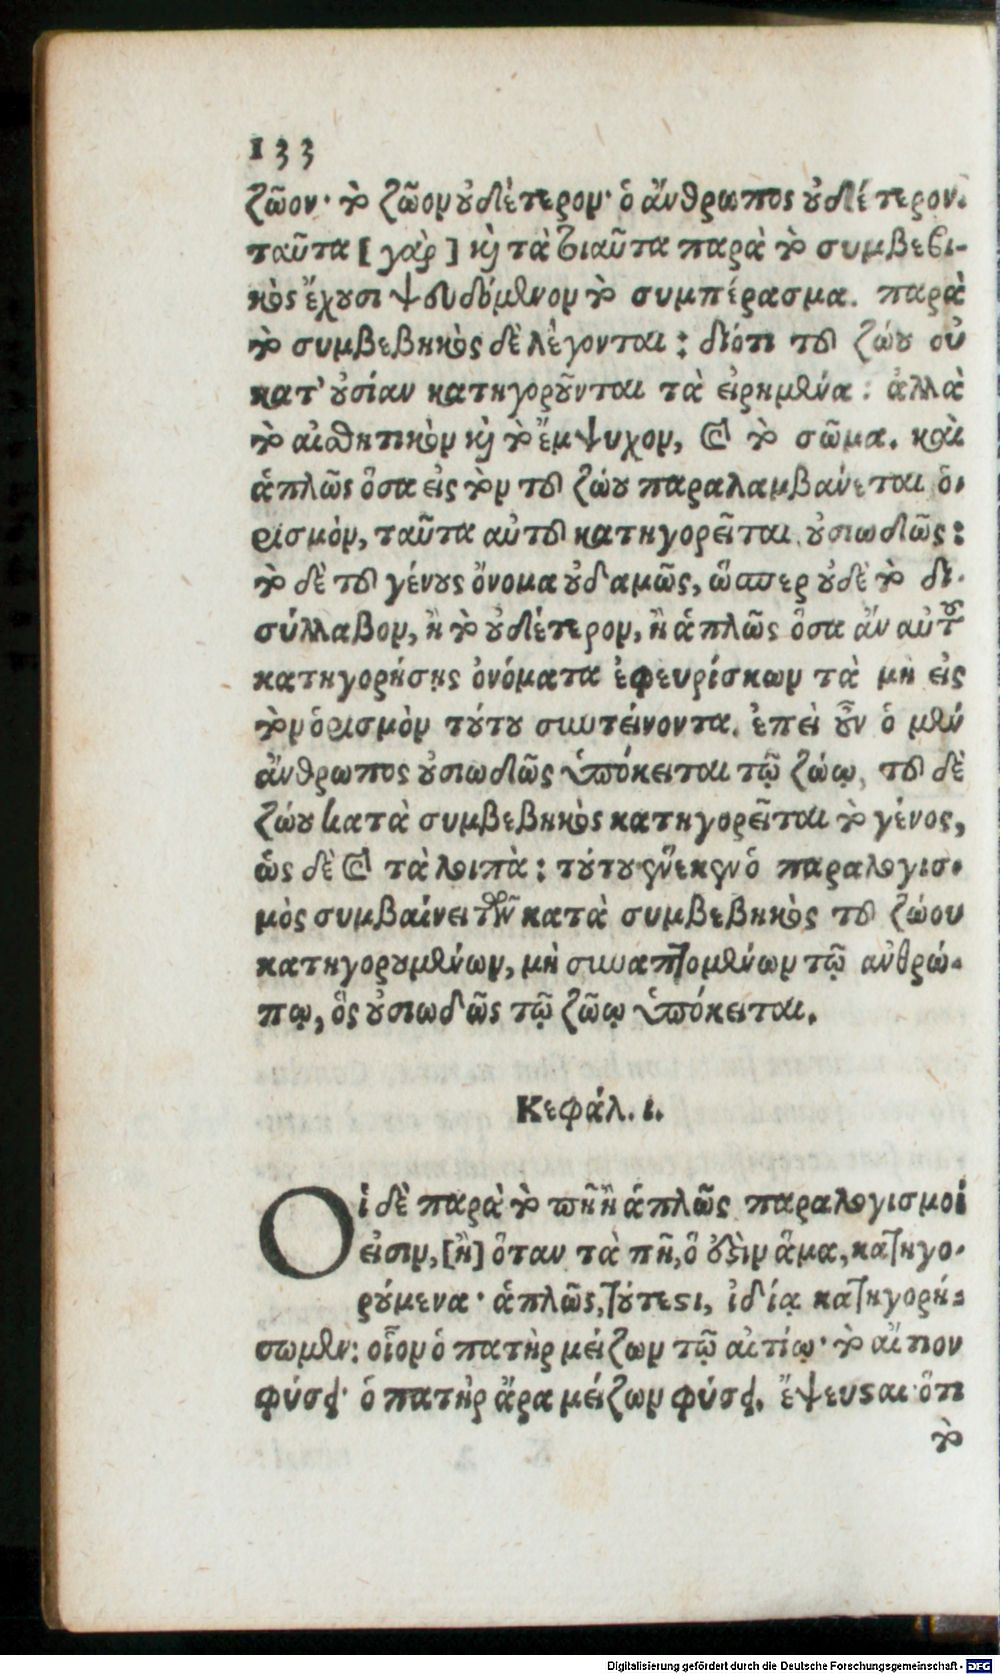 133
ζῶον· τὸ ζῶον οὐδέτερον· ὁ ἄνθρωπος οὐδέτερον.
ταῦτα [γὰρ] καὶ τὰ τοιαῦτα παρὰ τὸ συμβεβη-
κὸς ἔχουσι ψευδόμενον τὸ συμπέρασμα. παρὰ
τὸ συμβεβηκὸς δὲ λέγονται: διότι τοῦ ζώου οὐ
κατ' οὐσίαν κατηγοροῦνται τὰ εἰρημένα: ἀλλὰ
τὸ αἰσθητικὸν καὶ τὸ ἔμψυχον, καὶ τὸ σῶμα. καὶ
ἁπλῶς ὅσα εἰς τὸν τοῦ ζώου παραλαμβάνεται ὁ-
ρισμὸν, ταῦτα αὐτοῦ κατηγορεῖται οὐσιωδῶς:
τὸ δὲ τοῦ γένους ὄνομα οὐδαμῶς, ὥσπερ οὐδὲ τὸ δι-
σύλλαβον, ἢ τὸ οὐδέτερον, ἢ ἁπλῶς ὅσα ἄν αὐτοῦ
κατηγορήσῃς ὀνόματα ἐφευρίσκων τὰ μὴ εἰς
τὸν ὁρισμὸν τούτου συντείνοντα. ἐπεὶ οὖν ὁ μὲν
ἄνθρωπος οὐσιωδῶς ὑπόκειται τῷ ζώῳ, τοῦ δὲ
ζώου κατὰ συμβεβηκὸς κατηγορεῖται τὸ γένος,
ὡς δὲ καὶ τὰ λοιπὰ: τούτου ἕνεκεν ὁ παραλογισ-
μὸς συμβαίνει τῶν κατὰ συμβεβηκὸς τοῦ ζώου
κατηγορουμένων, μὴ συναπτομένων τῷ ἀνθρώ-
πῳ, ὃς οὐσιωδῶς τῷ ζῶῳ ὑπόκειται.
Κεφάλ. ι.
Οἱ δὲ παρὰ τὸ πῆ ἢ ἁπλῶς παραλογισμοί
εἰσιν, [ἢ] ὅταν τὰ πῆ, ὅ ἐστιν ἅμα, κατηγο-
ρούμενα· ἁπλῶς, τούτεστι, ἰδίᾳ κατηγορή-
σωμεν: οἷον ὁ πατὴρ μείζων τῷ αἰτίῳ· τὸ αἴτιον
φύσει· ὁ πατὴρ ἄρα μείζων φύσει. ἔψευσαι· ὅτι
τὸ
Digitalisierung gefördert durch die Deutsche Forschungsgemeinschaft - DFG